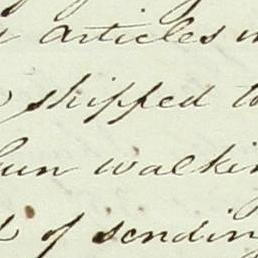 articles
shipped to
walkin
of sendin